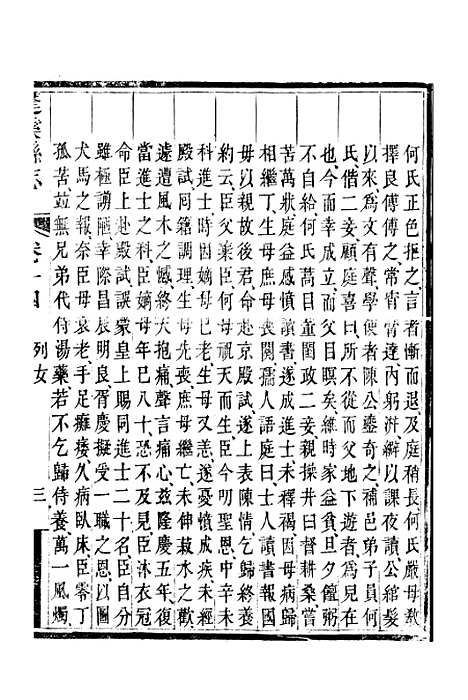 何氏正色拒之言者慚而退及庭稍長何氏嚴母教
擇良傅傅之常宵宵達內躬泲纑以課夜讀公綰髮
以來為文有聲學使者陳公鎏奇之補邑弟子員何
氏偕二妾顧庭喜曰氏所不即從地下遊者為兒在
也今而幸成立而父目瞑矣維時家益貧旦夕饘粥
不自給何氏萬日董閨政二妾親操井臼督耕桑嘗
苦萬狀庭益感憤遂成進士未釋褐因母病歸
相繼丁生母庶母喪閱孺人語庭曰士人讀書報國
毋以親故後君命趣赴京殿試遂上表陳情乞歸終養
約云臣父棄臣何母祝天而生臣今叨聖恩中辛未
科進士時因嫡母已老生母又恙遂憂憤成疾未經
殿試回籍調理生母庶母繼亡未伸菽水之歡
遽遭風木之憾天抱痛聲言痛心茲隆慶五年復
當進士之科臣嫡母年已八十恐不及見臣沐衣冠
命臣上赴殿試誤蒙皇上賜同進士二十名臣自分
雖極譾陋幸際昌辰明良胥慶擬受一職之恩以圖
犬馬之報奈臣母衰老手足癱痿久病臥床臣零丁
孤苦並無兄弟代侍湯藥若不乞歸侍養萬一風燭
卷十四
列女
三